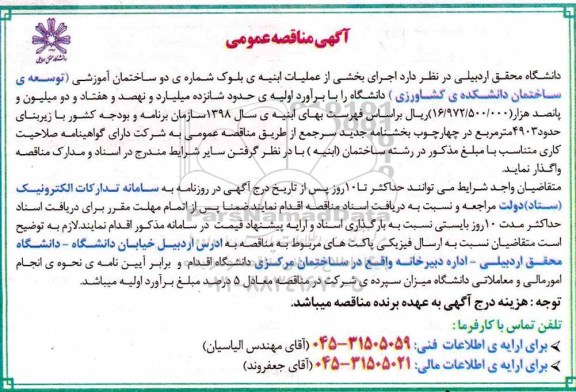 آگهی مناقصه عمومی
دانشگاه محقق اردبیلی در نظر دارد اجرای بخشی از عملیات ابنیه ی بلوک شماره ی دو ساختمان آموزشی (توسعه ی
ساختمان دانشکده ی کشاورزی) دانشگاه را با برآورد اولیه ی حدود شانزده میلیارد و نهصد و هفتاد و دو میلیون و
پانصد هزار(۱۶/۹۷۲/۵۰۰/۰۰۰)ریال براساس فهرست بهای ابنیه ی سال ۱۳۹۸سازمان برنامه و بودجه کشور با زیربنای
حدود۴۹۰۳مترمربع در چهارچوب بخشنامه جدید سرجمع از طریق مناقصه عمومی به شرکت دارای گواهینامه صلاحیت
کاری متناسب با مبلغ مذکور در رشته ساختمان (ابنیه) با در نظر گرفتن سایر شرایط مندرج در اسناد و مدارک مناقصه
واگذار نماید.
متقاضیان واجد شرایط می توانند حداکثر تا۱۰روز پس از تاریخ درج آگهی در روزنامه به سامانه تدارکات الکترونیک
(ستاد)دولت مراجعه و نسبت به دریافت اسناد مناقصه اقدام نمایند.ضمنا پس از اتمام مهلت مقرر برای دریافت اسناد
حداکثر مدت ۱۰روز بایستی نسبت به بارگذاری اسناد و ارایه پیشنهاد قیمت در سامانه مذکور اقدام نمایند.لازم به توضیح
است متقاضیان نسبت به ارسال فیزیکی پاکت های مربوط به مناقصه به ادرس اردبیل خیابان دانشگاه - دانشگاه
محقق اردبیلی - اداره دبیرخانه واقع در ساختمان مرکزی دانشگاه اقدام و برابر آیین نامه ی نحوه ی انجام
امورمالی و معاملاتی دانشگاه میزان سپرده ی شرکت در مناقصه معادل ۵ درصد مبلغ برآورد اولیه میباشد.
توجه : هزینه درج آگهی به عهده برنده مناقصه میباشد.
تلفن تماس با کارفرما :
برای ارایه ی اطلاعات فنی: ۳۱۵۰۵۰۵۹-۰۴۵ (آقای مهندس الیاسیان)
برای ارایه ی اطلاعات مالی: ۳۱۵۰۵۰۲۱-۰۴۵ (آقای جعفروند)